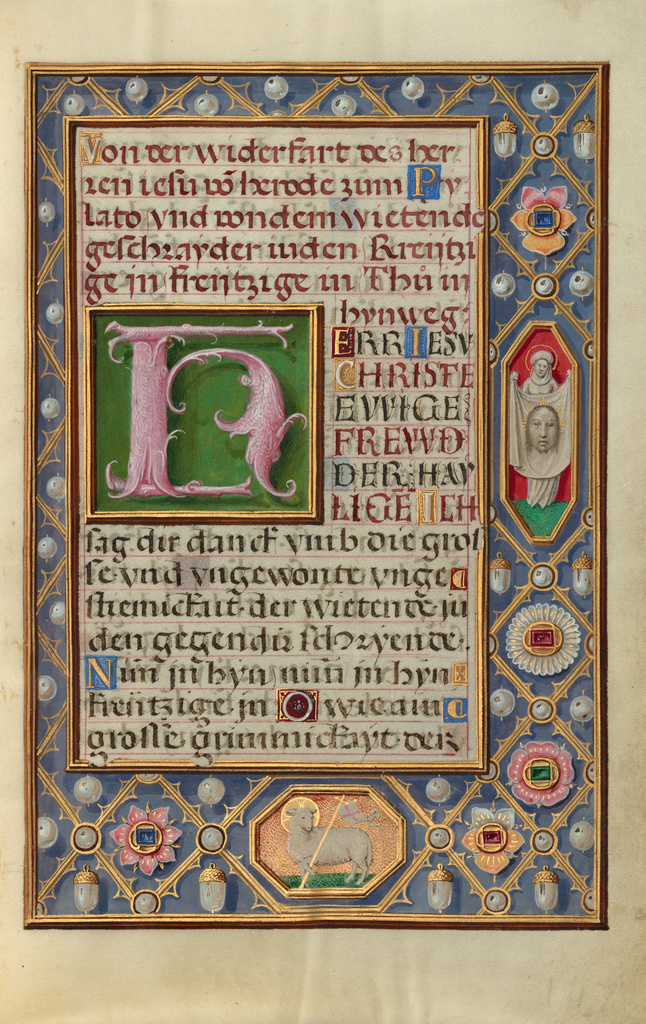 Von der widerfart des her
ren iesu vō herode zum Py
lato vnd von dem wietende
geschray der iuden Kreytzi
ge in kreytzige in Thů in
hynweg:
HERR IESV
CHRISTE
EWIGE
FREWD
DER HAY
LIGĒ ICH
sag dir danck vmb die gros
se vnd vngewonte vnge
stiemickait der wietende iu
den gegen dir schryende.
Nim jn hyn nim jn hyn
kreytzige jn O wie ain
grosse grimmickayt der